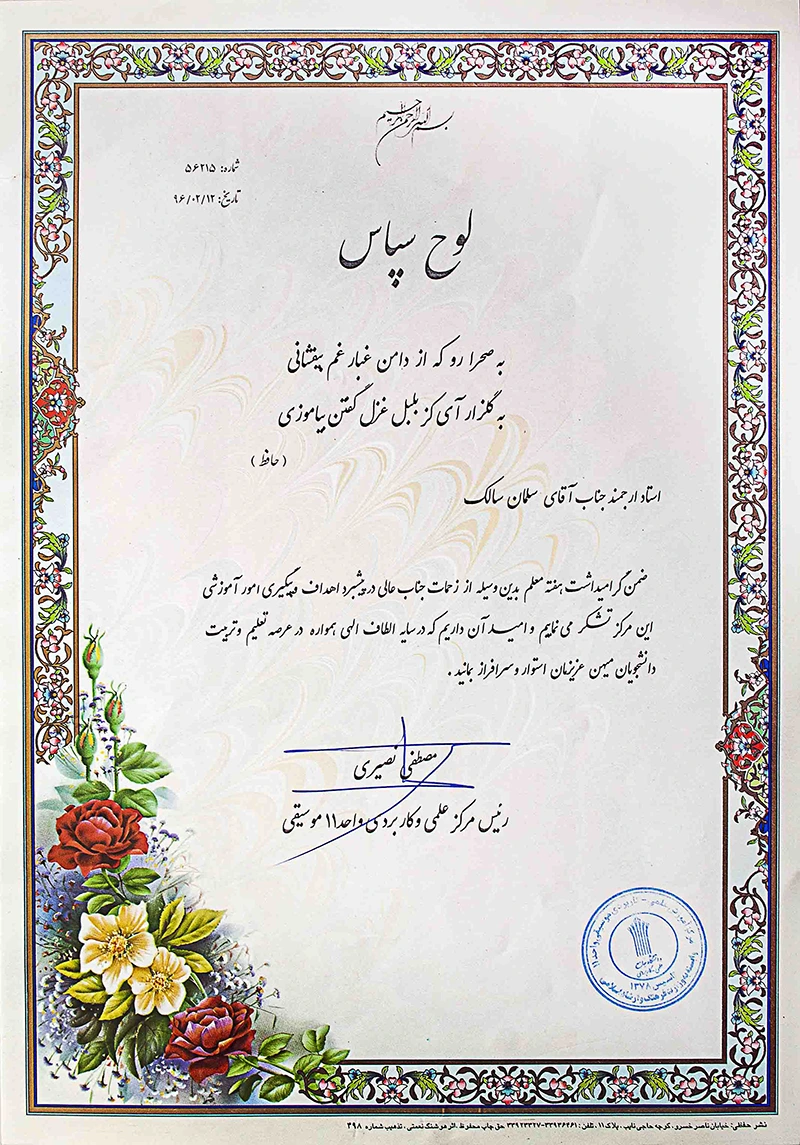 بسم الله الرحمن الرحیم
شماره: ۵۶۲۱۵
تاریخ: ۹۶/۰۲/۱۲
لوح سپاس
به صحرا رو که از دامن غبار غم بیفشانی
به گلزار آی کز بلبل غزل گفتن بیاموزی
(حافظ)
استاد ارجمند جناب آقای سلمان سالک
ضمن گرامیداشت هفته معلم بدین وسیله از زحمات جناب عالی در پیشبرد اهداف و پیگیری امور آموزشی
این مرکز تشکر می نماییم و امید آن داریم که در سایه الطاف الهی همواره در عرصه تعلیم و تربیت
دانشجویان میهن عزیزمان استوار و سرافراز بمانید.
مصطفی نصیری
رئیس مرکز علمی و کاربردی واحد ۱۱ موسیقی
مرکز آموزش علمی - کاربردی موسیقی واحد ۱۱
دانشگاه جامع
علمی کاربردی
تاسیس ۱۳۷۸
وزارت فرهنگ و ارشاد اسلامی
نشر حقایقی: خیابان ناصر خسرو، کوچه حاجی نایب، پلاک ۱۱، تلفن: ۳۳۹۳۶۲۶۱-۳۳۹۲۳۳۲۷ حق چاپ محفوظ، اثر هوشنگ نعمتی، تذهیب شماره ۴۹۸